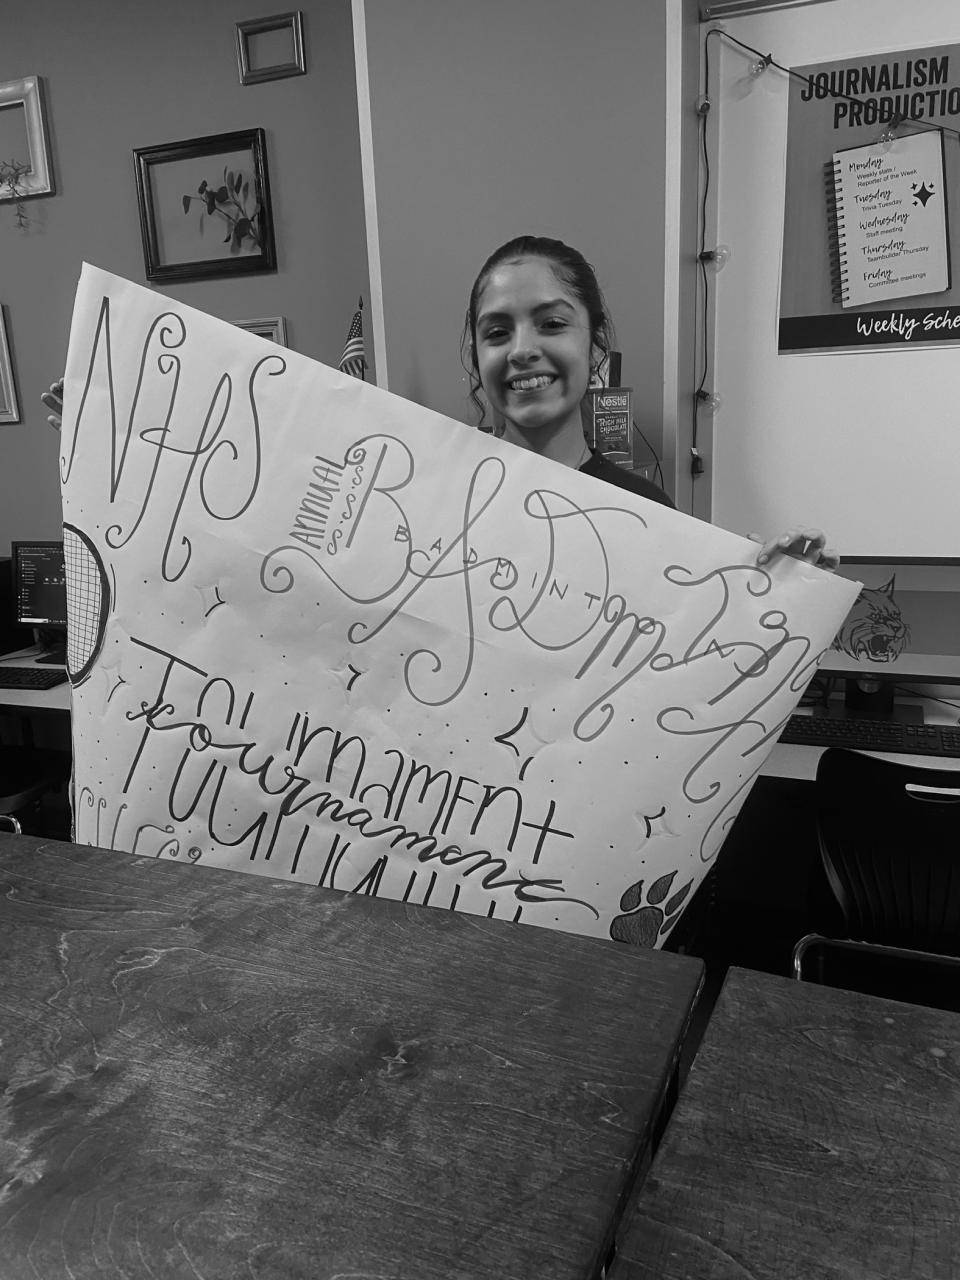 JOURNALISM
PRODUCTIO
Monday
Weekly stats /
Reporter of the Week
Tuesday
Trivia Tuesday
Wednesday
Staff meeting
Thursday
Teambuilder Thursday
Friday
Committee meetings
Weekly Sche
Nestlé
RICH MILK
CHOCOLATE
NHS
ANNUAL
BADminTon
BADMINT
Tournament
tournament